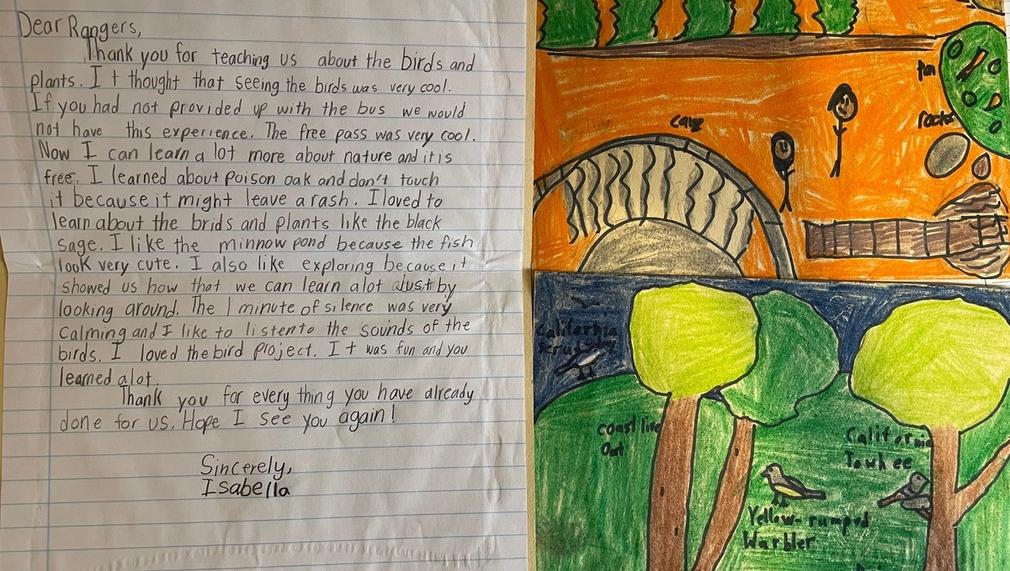 Dear Rangers,
Thank you for teaching us about the birds and
plants. I t thought that seeing the birds was very cool.
If you had not provided up with the bus we would
not have this experience. The free pass was very cool.
Now I can learn a lot more about nature and it is
free. I learned about poison oak and don't touch
it because it might leave a rash. I loved to
learn about the brids and plants like the black
sage. I like the minnow pond because the fish
look very cute. I also like exploring because it
showed us how that we can learn alot by
looking around. The 1 minute of silence was very
calming and I like to listen to the sounds of the
birds. I loved the bird project. I t was fun and you
learned alot.
Thank you for every thing you have already
done for us. Hope I see you again!
Sincerely,
Isabella
cave
rocks
California
coast live
Oat
California
Towhee
Yellow-rumped
Warbler